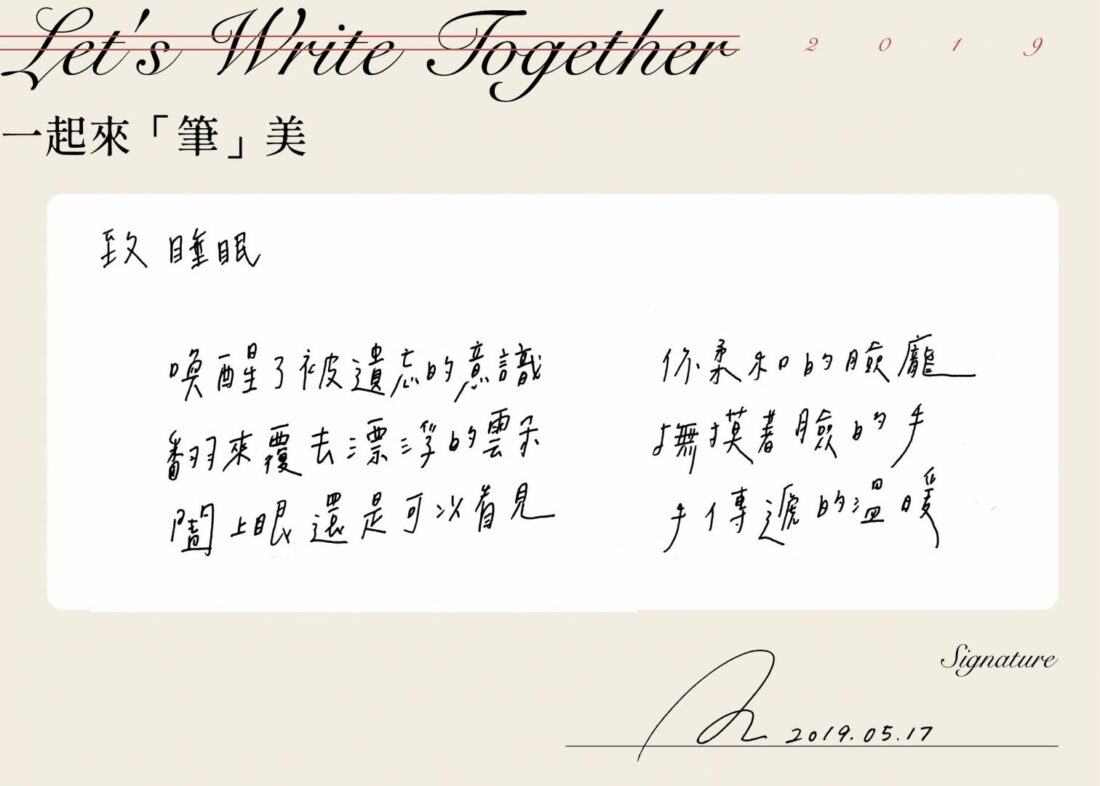 Let's Write Together
2 0 1 9
一起來「筆」美
致 睡眠
喚醒了被遺忘的意識
翻來覆去漂浮的雲朵
闔上眼還是可以看見
你柔和的臉龐
撫摸著臉的手
手傳遞的溫暖
Signature
2019.05.17